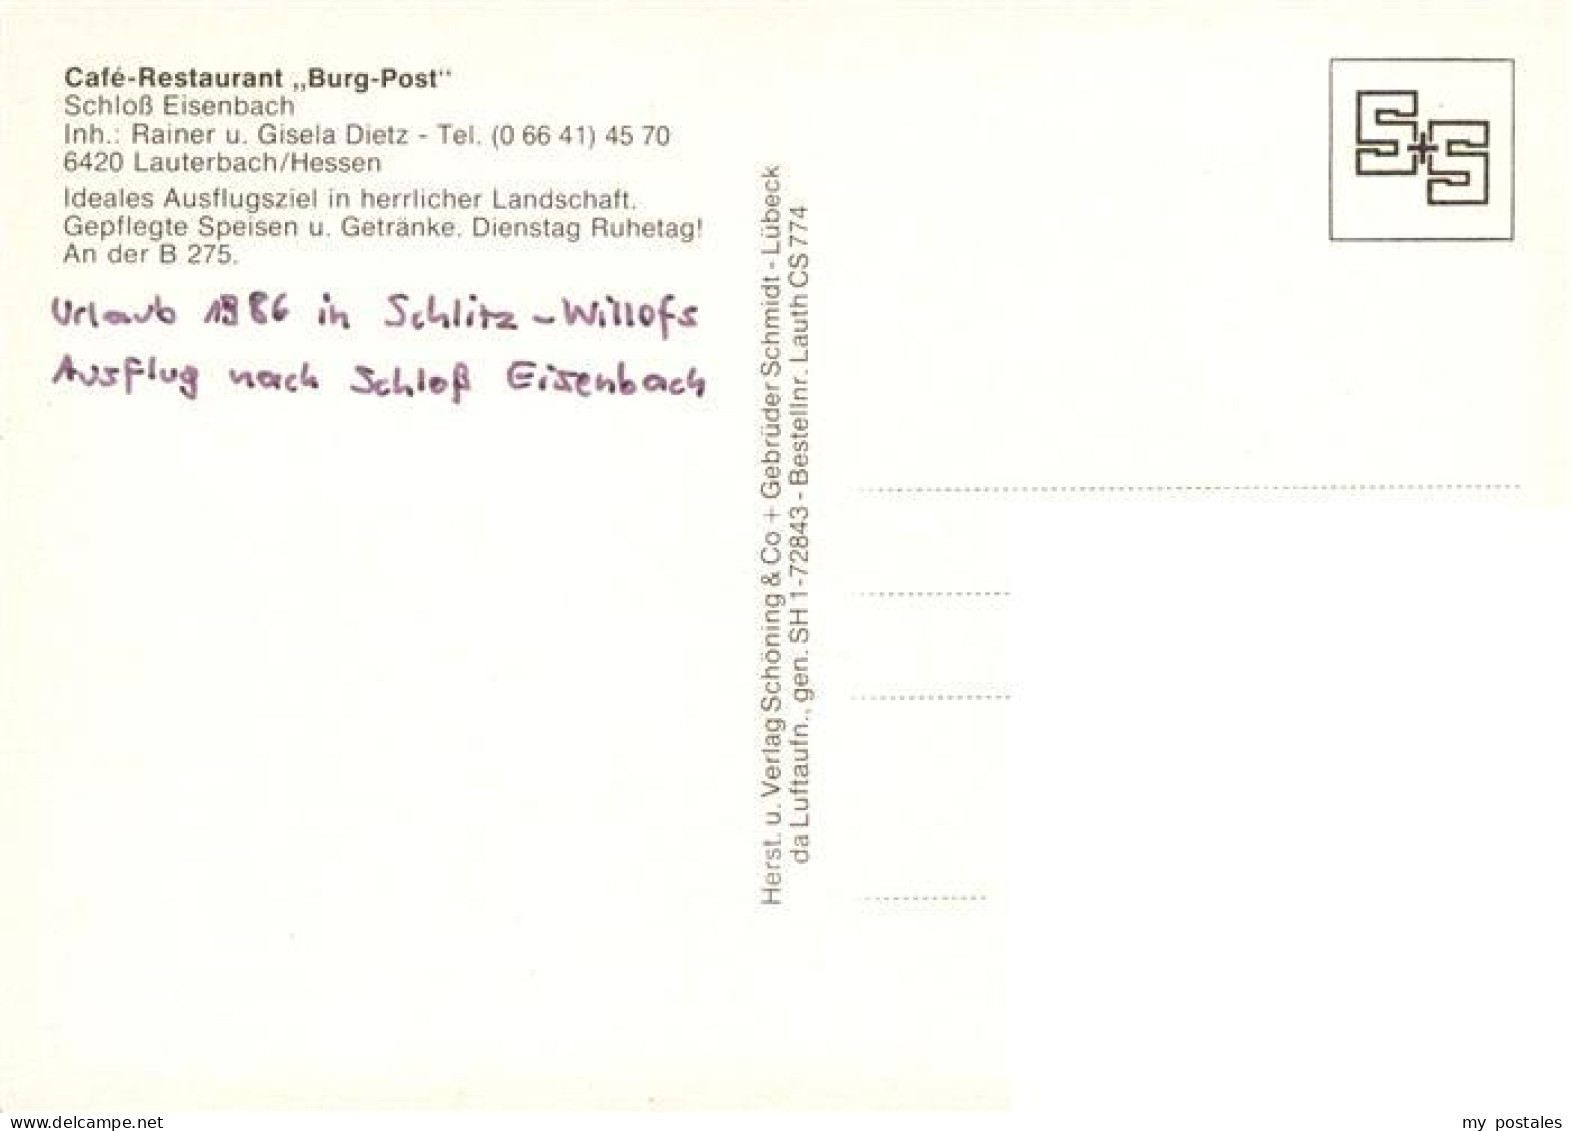 Café-Restaurant „Burg-Post"
Schloß Eisenbach
Inh.: Rainer u. Gisela Dietz - Tel. (0 66 41) 45 70
6420 Lauterbach/Hessen
Ideales Ausflugsziel in herrlicher Landschaft.
Gepflegte Speisen u. Getränke. Dienstag Ruhetag!
An der B 275.
Urlaub 1986 in Schlitz - Willofs
Ausflug nach Schloß Eisenbach
Herst. u. Verlag Schöning & Co + Gebrüder Schmidt - Lübeck
da Luftaufn., gen. SH 1-72843 - Bestellnr. Lauth CS 774
S+S
delcampe.net
my postales